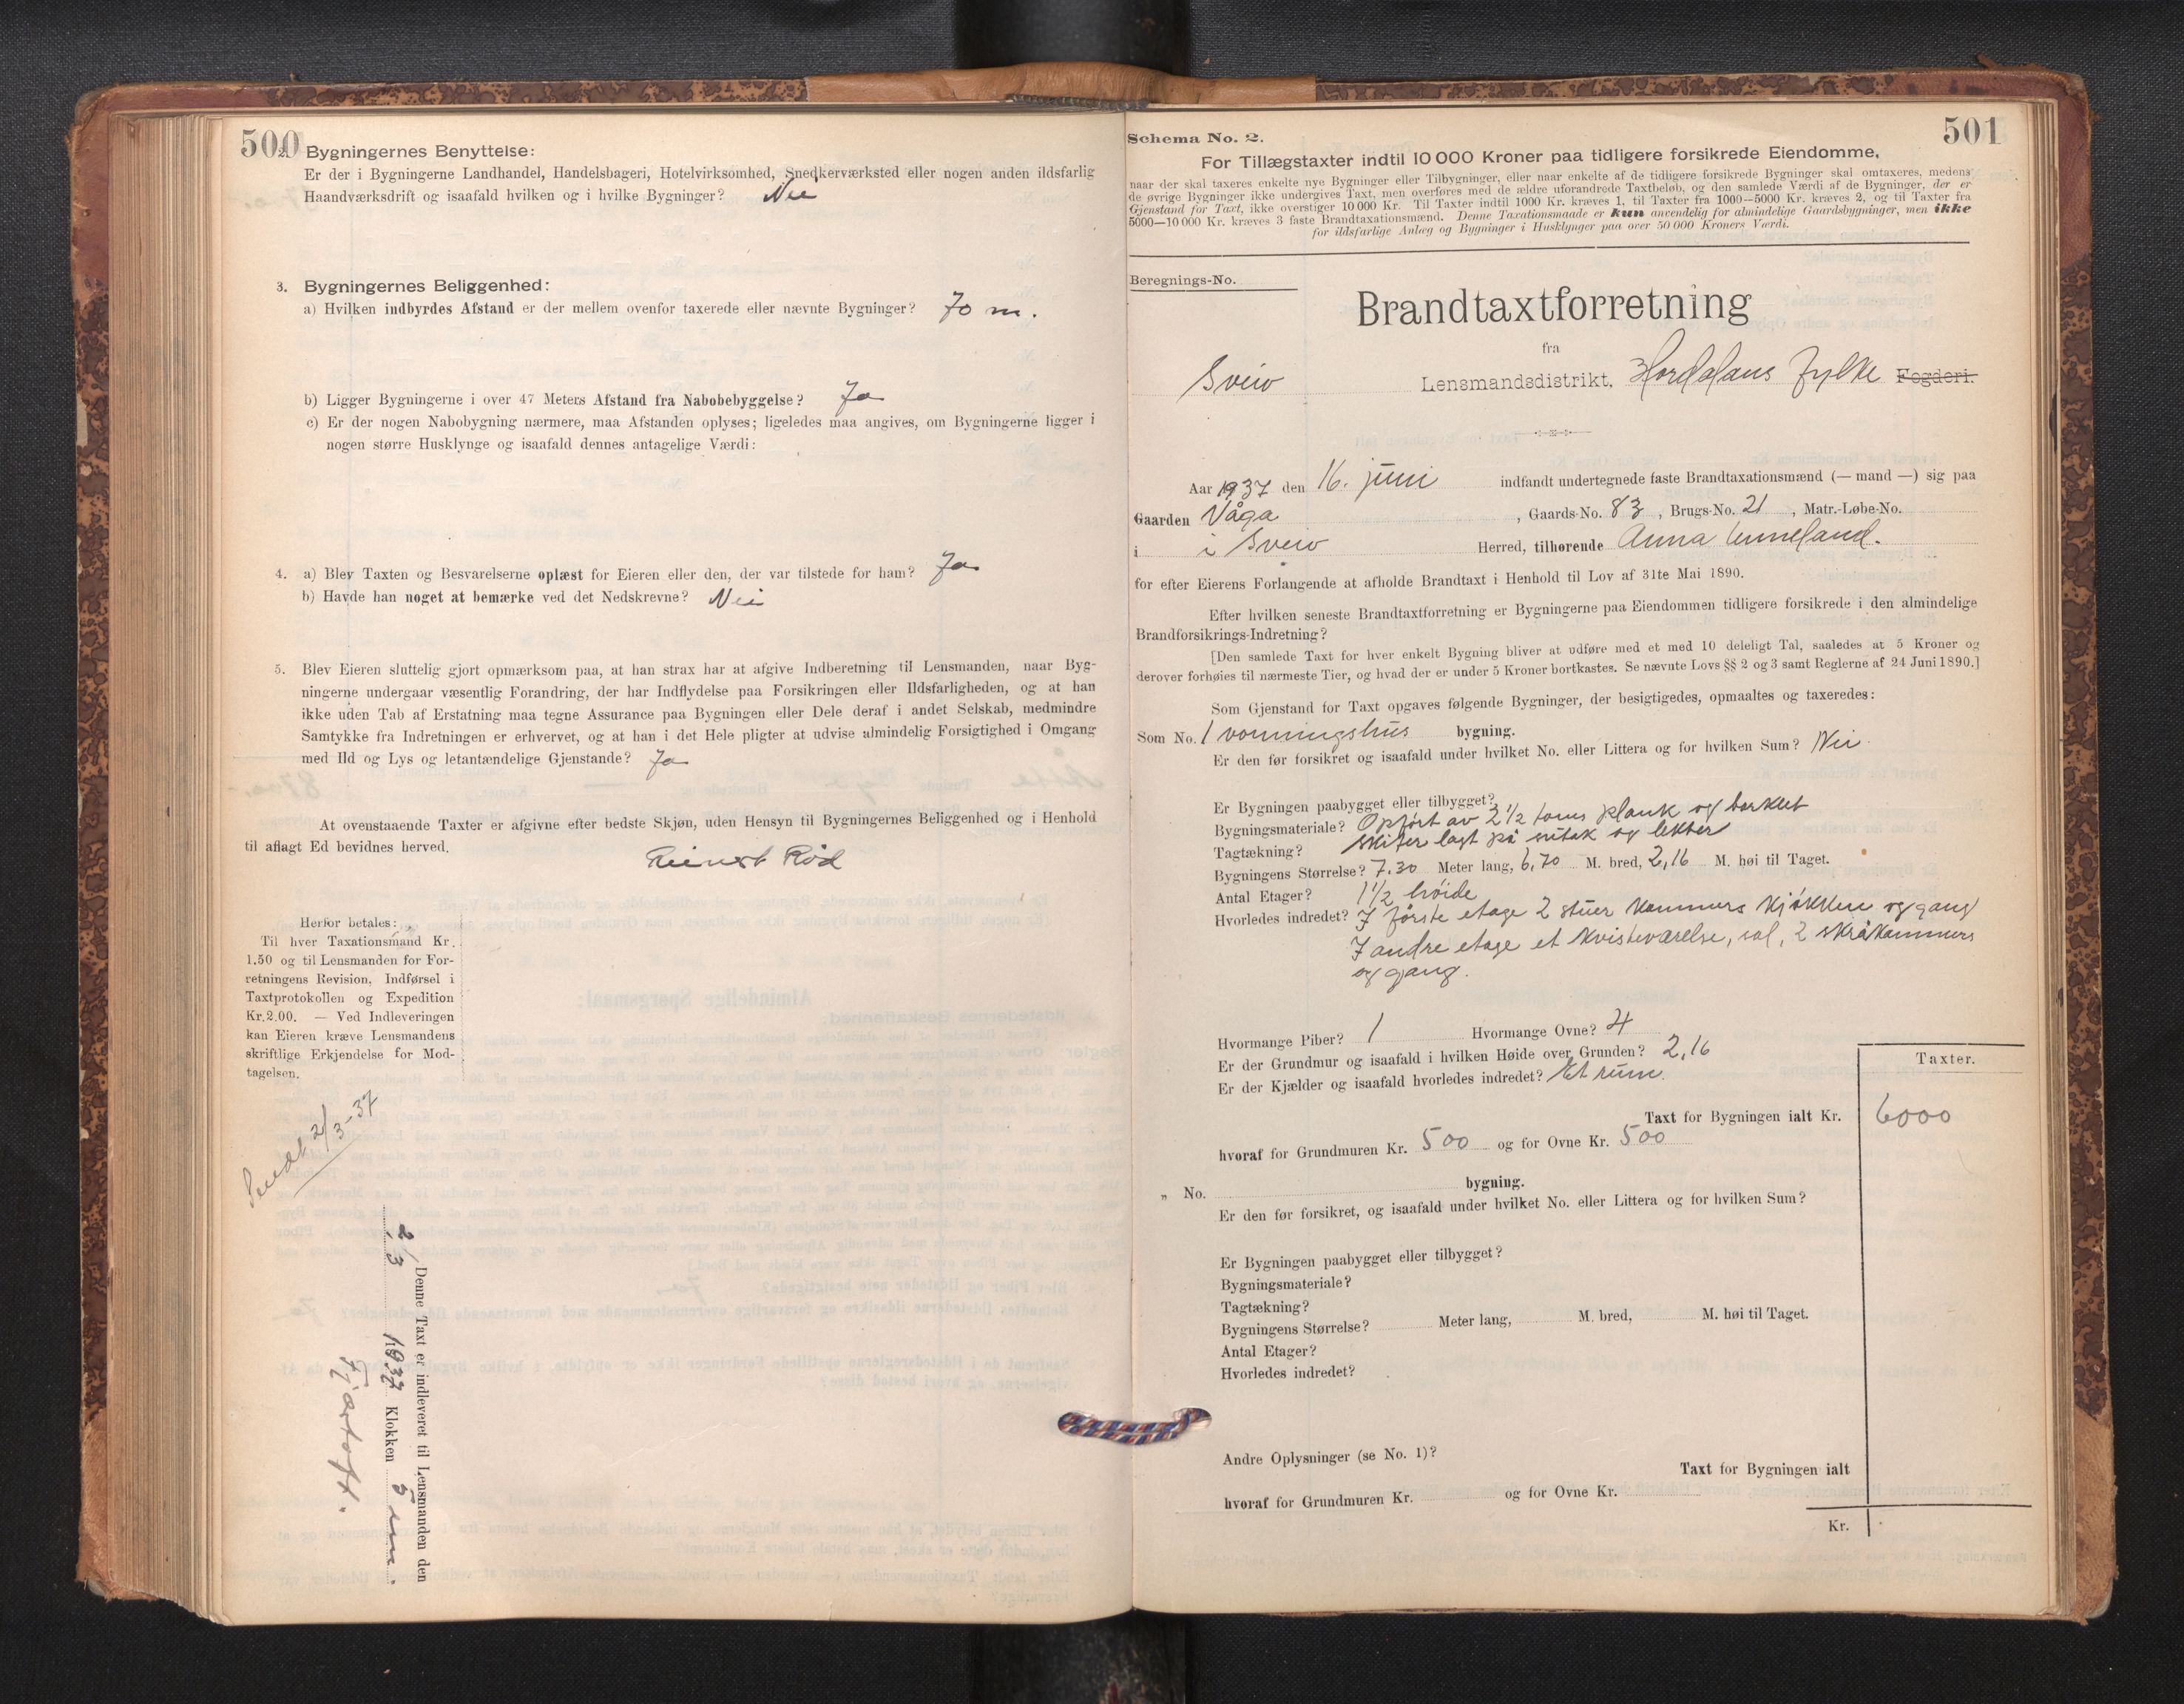 500
2. Bygningernes Benyttelse:
Er der i Bygningerne Landhandel, Handelsbageri, Hotelvirksomhed, Snedkerværksted eller nogen anden ildsfarlig
Haandværksdrift og isaafald hvilken og i hvilke Bygninger? Nei
3. Bygningernes Beliggenhed:
a) Hvilken indbyrdes Afstand er der mellem ovenfor taxerede eller nævnte Bygninger? 70 m.
b) Ligger Bygningerne i over 47 Meters Afstand fra Nabobebyggelse? Ja
c) Er der nogen Nabobygning nærmere, maa Afstanden oplyses; ligeledes maa angives, om Bygningerne ligger i
nogen større Husklynge og isaafald dennes antagelige Værdi:
4. a) Blev Taxten og Besvarelserne oplæst for Eieren eller den, der var tilstede for ham? Ja
b) Havde han noget at bemærke ved det Nedskrevne? Nei
5. Blev Eieren sluttelig gjort opmærksom paa, at han strax har at afgive Indberetning til Lensmanden, naar Byg-
ningerne undergaar væsentlig Forandring, der har Indflydelse paa Forsikringen eller Ildsfarligheden, og at han
ikke uden Tab af Erstatning maa tegne Assurance paa Bygningen eller Dele deraf i andet Selskab, medmindre
Samtykke fra Indretningen er erhvervet, og at han i det Hele pligter at udvise almindelig Forsigtighed i Omgang
med Ild og Lys og letantændelige Gjenstande? Ja
At ovenstaaende Taxter er afgivne efter bedste Skjøn, uden Hensyn til Bygningernes Beliggenhed og i Henhold
til aflagt Ed bevidnes herved.
Reinert Rød
Herfor betales:
Til hver Taxationsmand Kr.
1.50 og til Lensmanden for For-
retningens Revision, Indførsel i
Taxtprotokollen og Expedition
Kr. 2.00. — Ved Indleveringen
kan Eieren kræve Lensmandens
skriftlige Erkjendelse for Mod-
tagelsen.
Sendt 2/3-37
Denne Taxt er indleveret til Lensmanden den
2/3 1937 Klokken 5 em.
501
Schema No. 2.
For Tillægstaxter indtil 10 000 Kroner paa tidligere forsikrede Eiendomme,
naar der skal taxeres enkelte nye Bygninger eller Tilbygninger, eller naar enkelte af de tidligere forsikrede Bygninger skal omtaxeres, medens
de øvrige Bygninger ikke undergives Taxt, men overføres med de ældre uforandrede Taxtbeløb, og den samlede Værdi af de Bygninger, der er
Gjenstand for Taxt, ikke overstiger 10 000 Kr. Til Taxter indtil 1000 Kr. kræves 1, til Taxter fra 1000—5000 Kr. kræves 2, og til Taxter fra
5000—10 000 Kr. kræves 3 faste Brandtaxationsmænd. Denne Taxationsmaade er kun anvendelig for almindelige Gaardsbygninger, men ikke
for ildsfarlige Anlæg og Bygninger i Husklynger paa over 50 000 Kroners Værdi.
Beregnings-No.
Brandtaxtforretning
fra
Sveio Lensmandsdistrikt, Hordalans fylke Fogderi.
Aar 1937 den 16. juni indfandt undertegnede faste Brandtaxationsmænd (— mand —) sig paa
Gaarden Våga, Gaards-No. 83, Brugs-No. 21, Matr.-Løbe-No.
i i Sveio Herred, tilhørende Anna Unneland.
for efter Eierens Forlangende at afholde Brandtaxt i Henhold til Lov af 31te Mai 1890.
Efter hvilken seneste Brandtaxtforretning er Bygningerne paa Eiendommen tidligere forsikrede i den almindelige
Brandforsikrings-Indretning?
[Den samlede Taxt for hver enkelt Bygning bliver at udføre med et med 10 deleligt Tal, saaledes at 5 Kroner og
derover forhøies til nærmeste Tier, og hvad der er under 5 Kroner bortkastes. Se nævnte Lovs §§ 2 og 3 samt Reglerne af 24 Juni 1890.]
Som Gjenstand for Taxt opgaves følgende Bygninger, der besigtigedes, opmaaltes og taxeredes:
Som No. 1 vonningshus bygning.
Er den før forsikret og isaafald under hvilket No. eller Littera og for hvilken Sum? Nei
Er Bygningen paabygget eller tilbygget?
Bygningsmateriale? Opført av 2 1/2 toms plank og borket
Tagtækning? skifer lagt på sutak og lekter
Bygningens Størrelse? 7.30 Meter lang, 6,70 M. bred, 2,16 M. høi til Taget.
Antal Etager? 1 1/2 høide
Hvorledes indredet? I første etage 2 stuer kammers kjøkken og gang
I andre etage et kvistværelse, sal, 2 skråkammers
og gang.
Hvormange Piber? 1 Hvormange Ovne? 4
Er der Grundmur og isaafald i hvilken Høide over Grunden? 2,16
Er der Kjælder og isaafald hvorledes indredet? Et rum.
Taxter.
Taxt for Bygningen ialt Kr. 6000
hvoraf for Grundmuren Kr. 500 og for Ovne Kr. 500
„ No. bygning.
Er den før forsikret, og isaafald under hvilket No. eller Littera og for hvilken Sum?
Er Bygningen paabygget eller tilbygget?
Bygningsmateriale?
Tagtækning?
Bygningens Størrelse? Meter lang, M. bred, M. høi til Taget.
Antal Etager?
Hvorledes indredet?
Andre Oplysninger (se No. 1)?
Taxt for Bygningen ialt
hvoraf for Grundmuren Kr. og for Ovne Kr.
Kr.